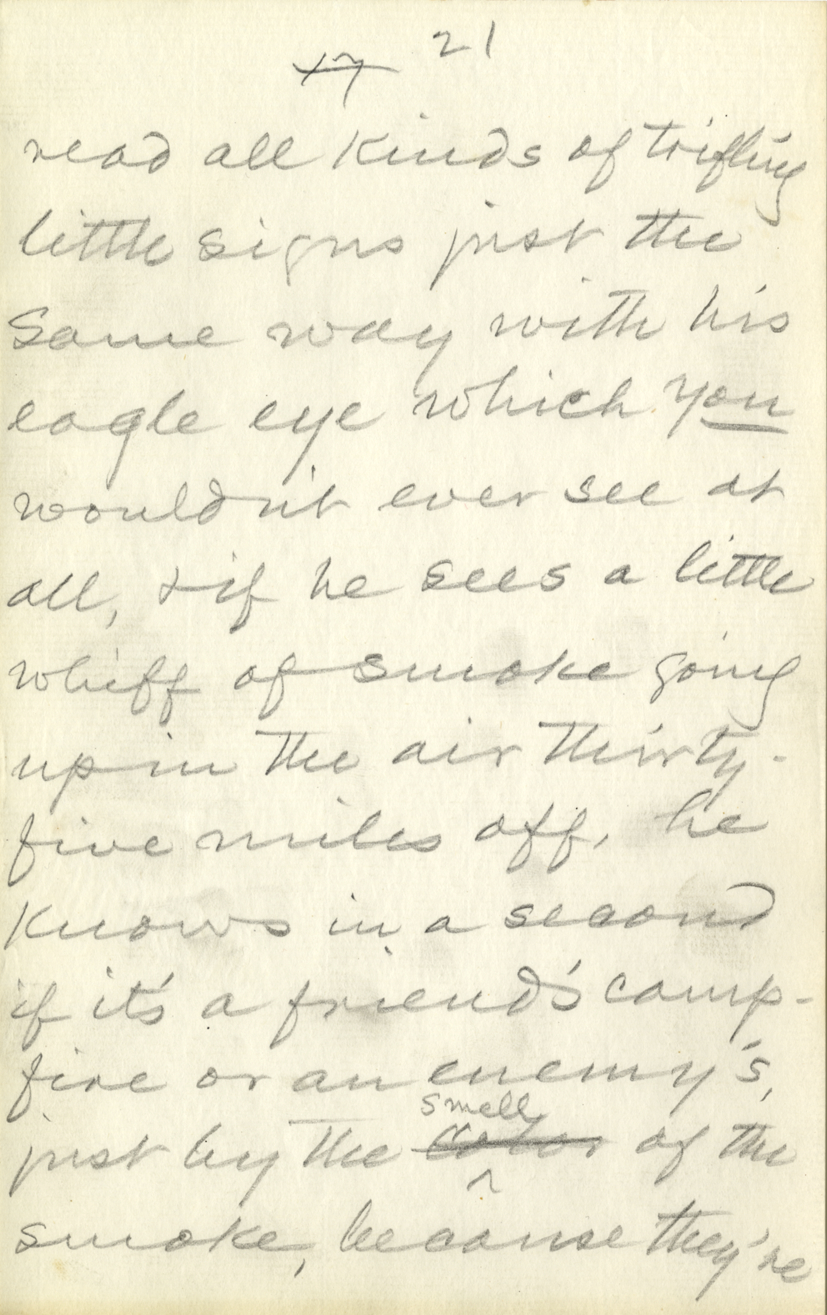 17 21
read all kinds of trifling
little signs just the
same way with his
eagle eye which you
wouldn't ever see at
all, & if he sees a little
whiff of smoke going
up in the air thirty-
five miles off, he
knows in a second
if it's a friend's camp-
fire or an enemy's,
smell
just by the color of the
smoke, because they're